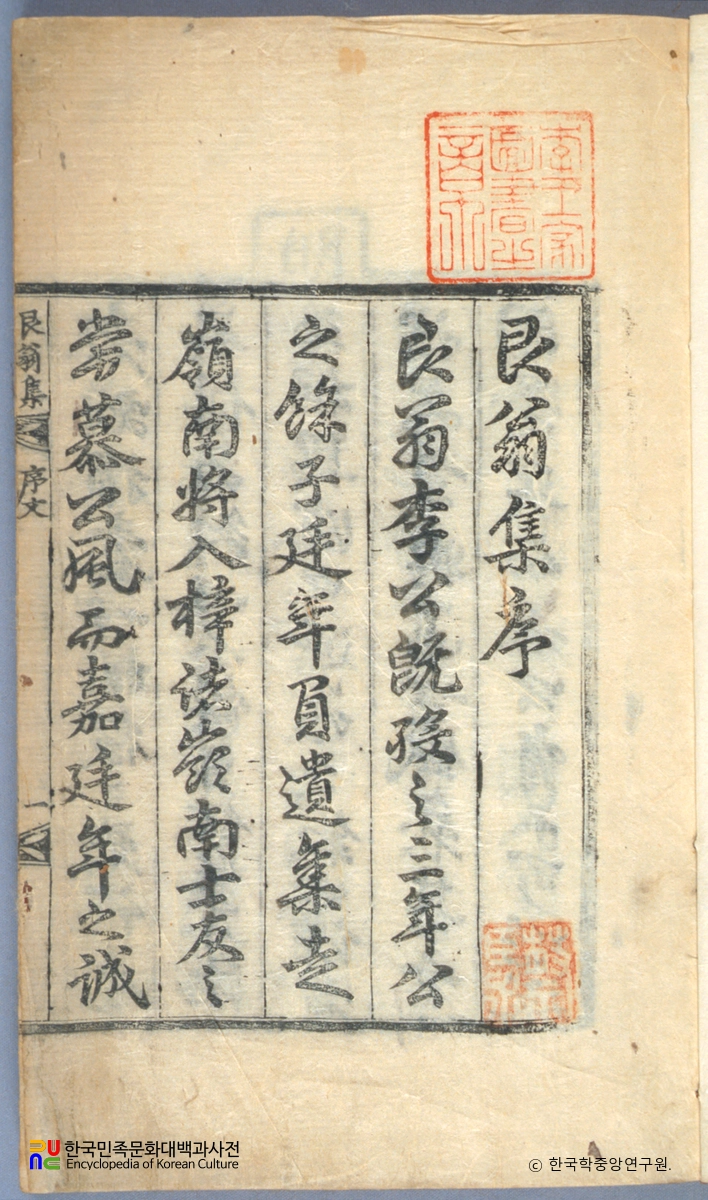 李王家圖書之章
艮翁集序
艮翁李公旣歿之三年公
之餘子廷年負遺集走
嶺南將入梓諸嶺南士友之
嘗慕公風而嘉廷年之誠
艮翁集 序文 一
한국민족문화대백과사전
Encyclopedia of Korean Culture
© 한국학중앙연구원.